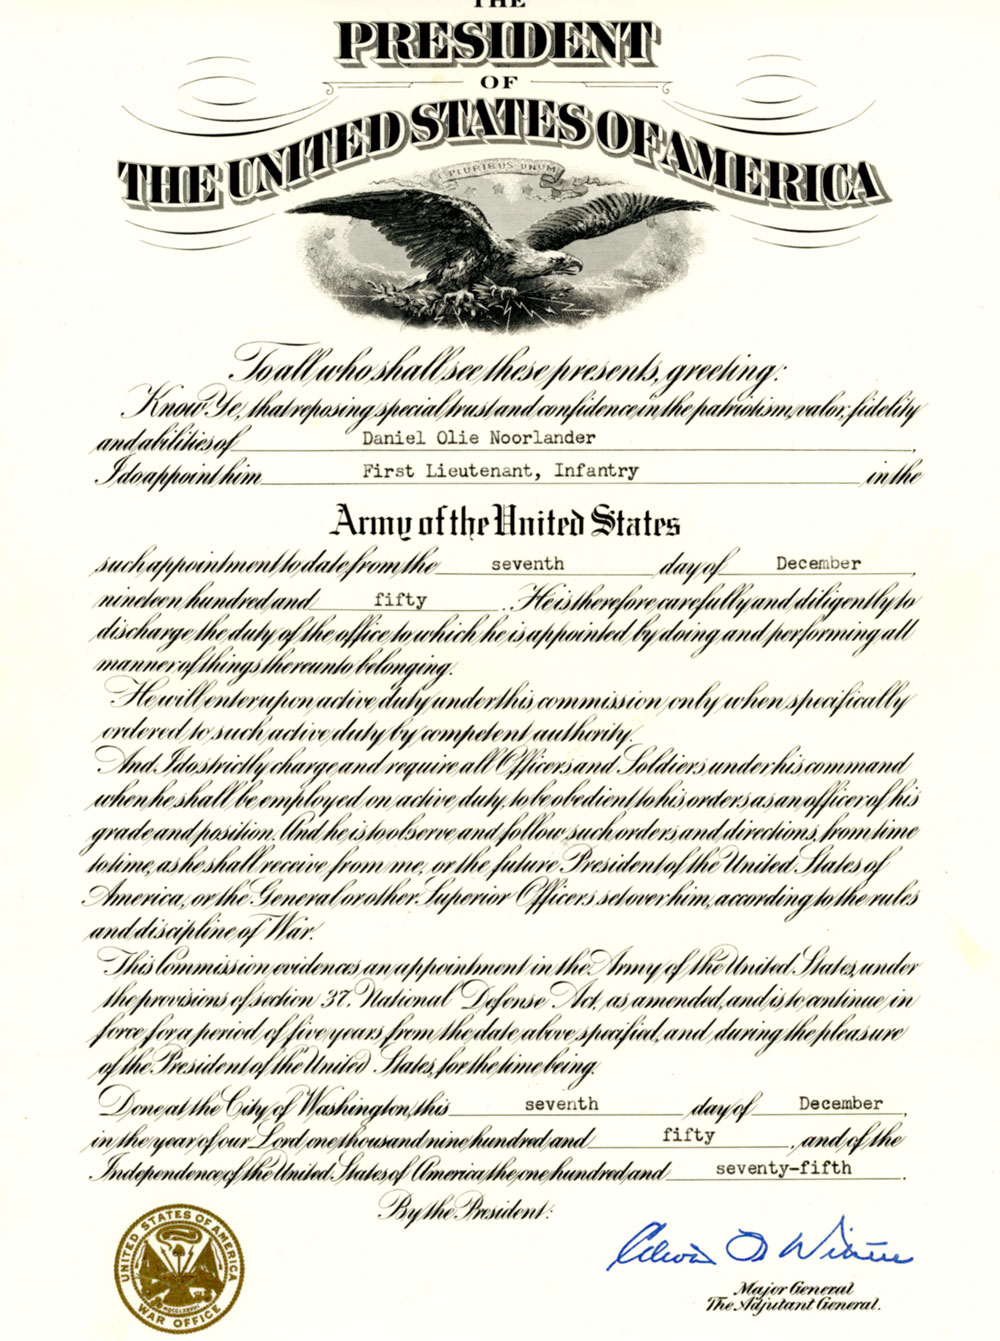 THE
PRESIDENT
OF
THE UNITED STATES OF AMERICA
PLURIBUS UNUM
To all who shall see these presents, greeting:
Know Ye, that reposing special trust and confidence in the patriotism, valor, fidelity
and abilities of Daniel Olie Noorlander,
I do appoint him First Lieutenant, Infantry in the
Army of the United States
such appointment to date from the seventh day of December,
nineteen hundred and fifty. He is therefore carefully and diligently to
discharge the duty of the office to which he is appointed by doing and performing all
manner of things thereunto belonging.
He will enter upon active duty under this commission only when specifically
ordered to such active duty by competent authority.
And I do strictly charge and require all Officers and Soldiers under his command
when he shall be employed on active duty, to be obedient to his orders as an officer of his
grade and position. And he is to observe and follow such orders and directions, from time
to time, as he shall receive from me, or the future President of the United States of
America, or the General or other Superior Officers set over him, according to the rules
and discipline of War.
This Commission evidences an appointment in the Army of the United States, under
the provisions of section 37, National Defense Act, as amended, and is to continue in
force for a period of five years from the date above specified, and during the pleasure
of the President of the United States, for the time being.
Done at the City of Washington, this seventh day of December,
in the year of our Lord one thousand nine hundred and fifty, and of the
Independence of the United States of America the one hundred and seventy-fifth.
By the President:
UNITED STATES OF AMERICA
WAR OFFICE
Major General
The Adjutant General.